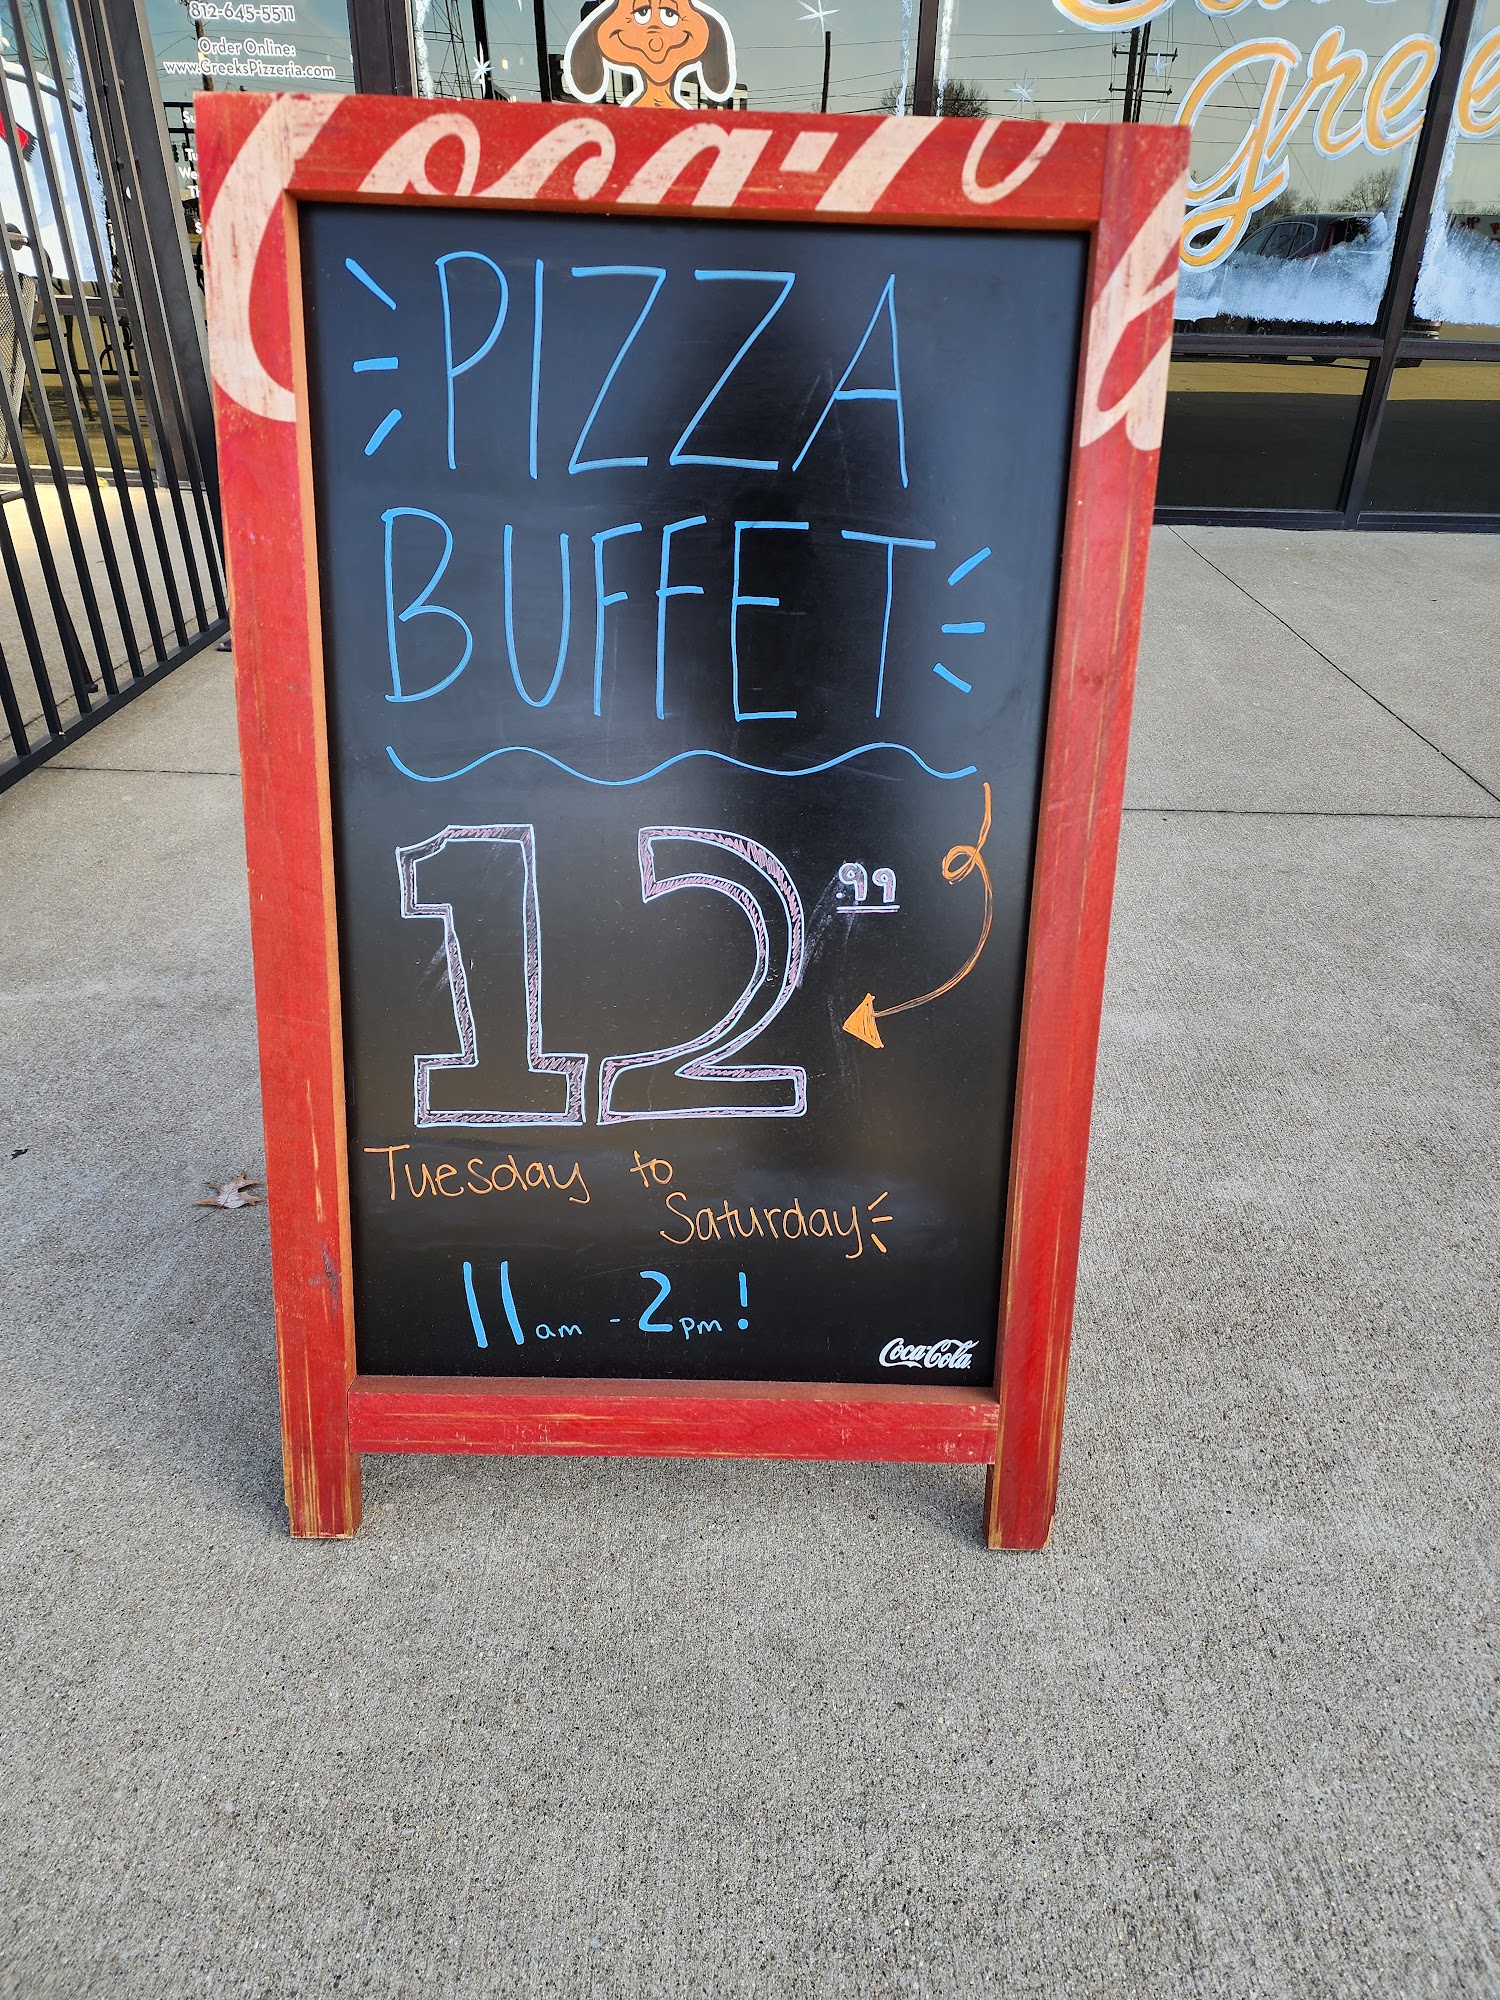 812-645-5511
Order Online:
www.GreeksPizzeria.com
Coca-Co
PIZZA
BUFFET
12.99
Tuesday to
Saturday
11am - 2pm!
Coca-Cola